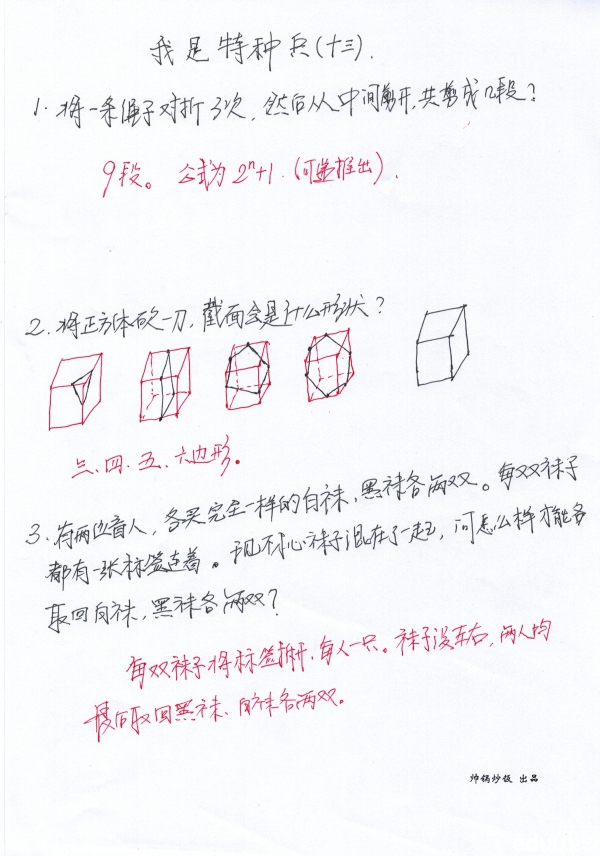 我是特种兵(十三).
1. 将一条绳子对折3次，然后从中间剪开，共剪成几段？
9段。公式为2ⁿ+1.(可递推出).
2. 将正方体砍一刀，截面会是什么形状？
三.四.五.六边形。
3. 有两位盲人，各买完全一样的白袜，黑袜各两双。每双袜子
都有一张标签连着。现不小心袜子混在了一起，问怎么样才能各
取回白袜，黑袜各两双？
每双袜子将标签撕开，每人一只。袜子没左右，两人均
最后取回黑袜、白袜各两双。
帅锅炒饭 出品